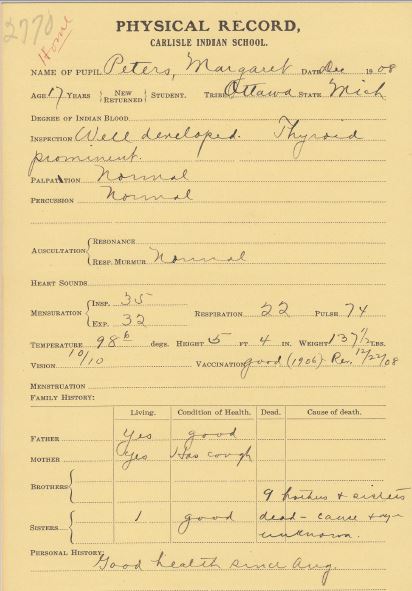 2770
Home
PHYSICAL RECORD,
CARLISLE INDIAN SCHOOL.
NAME OF PUPIL Peters, Margaret DATE Dec 1908
AGE 17 YEARS { NEW RETURNED } STUDENT. TRIBE Ottawa STATE Mich
DEGREE OF INDIAN BLOOD
INSPECTION Well developed. Thyroid
prominent.
PALPATION Normal
PERCUSSION Normal
AUSCULTATION { RESONANCE
RESP. MURMUR Normal
HEART SOUNDS
MENSURATION { INSP. 35 RESPIRATION 22 PULSE 74
EXP. 32
TEMPERATURE 98 6 degs. HEIGHT 5 FT 4 IN. WEIGHT 137 1/2 LBS.
VISION 10/10 VACCINATION good (1906) Rev. 12/22/08
MENSTRUATION
FAMILY HISTORY:
Living. Condition of Health. Dead. Cause of death.
FATHER yes good
MOTHER yes Has cough
BROTHERS { 9 brothers & sisters
SISTERS { 1 good dead - cause & age
unknown.
PERSONAL HISTORY: Good health since Aug.